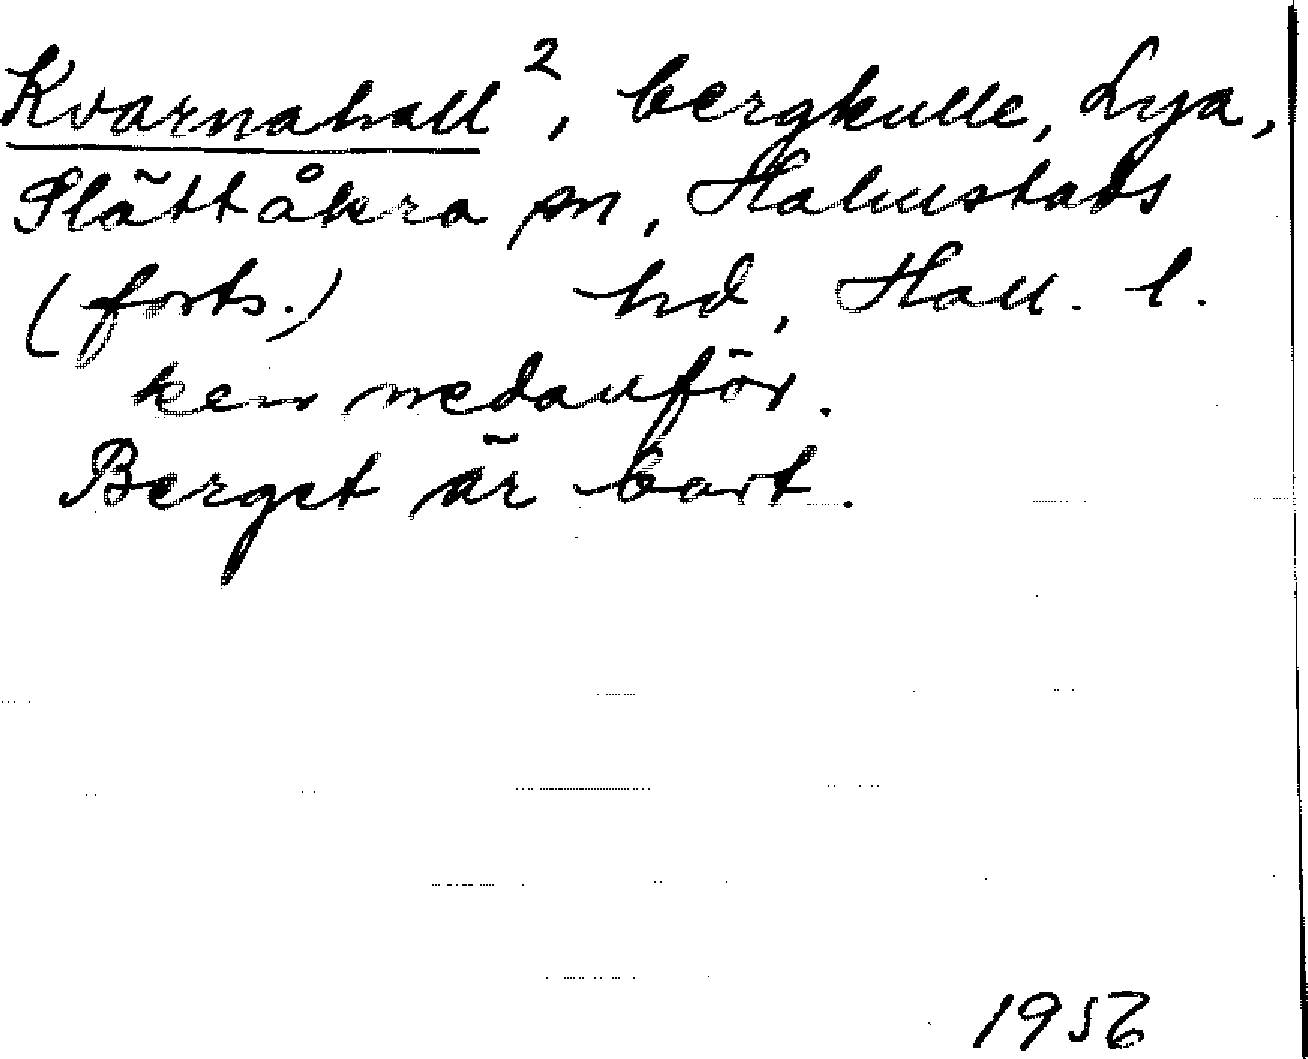 Kvarnahall², bergkulle, Lya,
Slättåkra sn, Halmstads
(forts.) hd, Hall. l.
ken nedanför.
Berget är bart.
1956